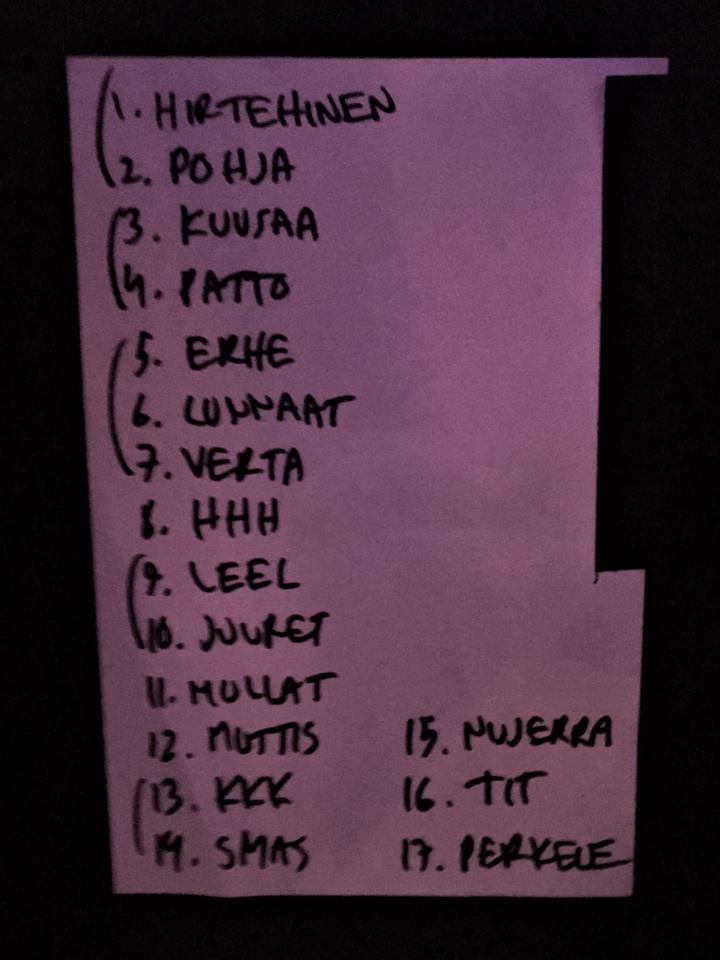 1. HIRTEHINEN
2. POHJA
3. KUUSAA
4. PATTO
5. ERHE
6. LUNNAAT
7. VERTA
8. HHH
9. LEEL
10. JUURET
11. MULLAT
12. MUTTIS
13. KKK
14. SMAS
15. MUJERRA
16. TIT
17. PERKELE